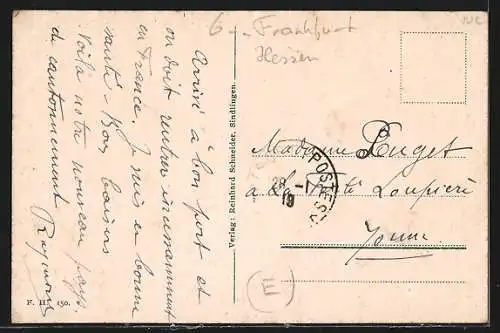 6 - Frankfurt
Hessen
Arrivé à bon port et
on doit rentrer incessamment
en France. Je suis en bonne
santé - Bons baisers
Voilà notre nouveau pays
de cantonnement
Raymond
F. H. 150.
Verlag: Reinhard Schneider, Sindlingen.
Madame Puget
à la Ferté Loupière
Yonne
POSTES
19
E